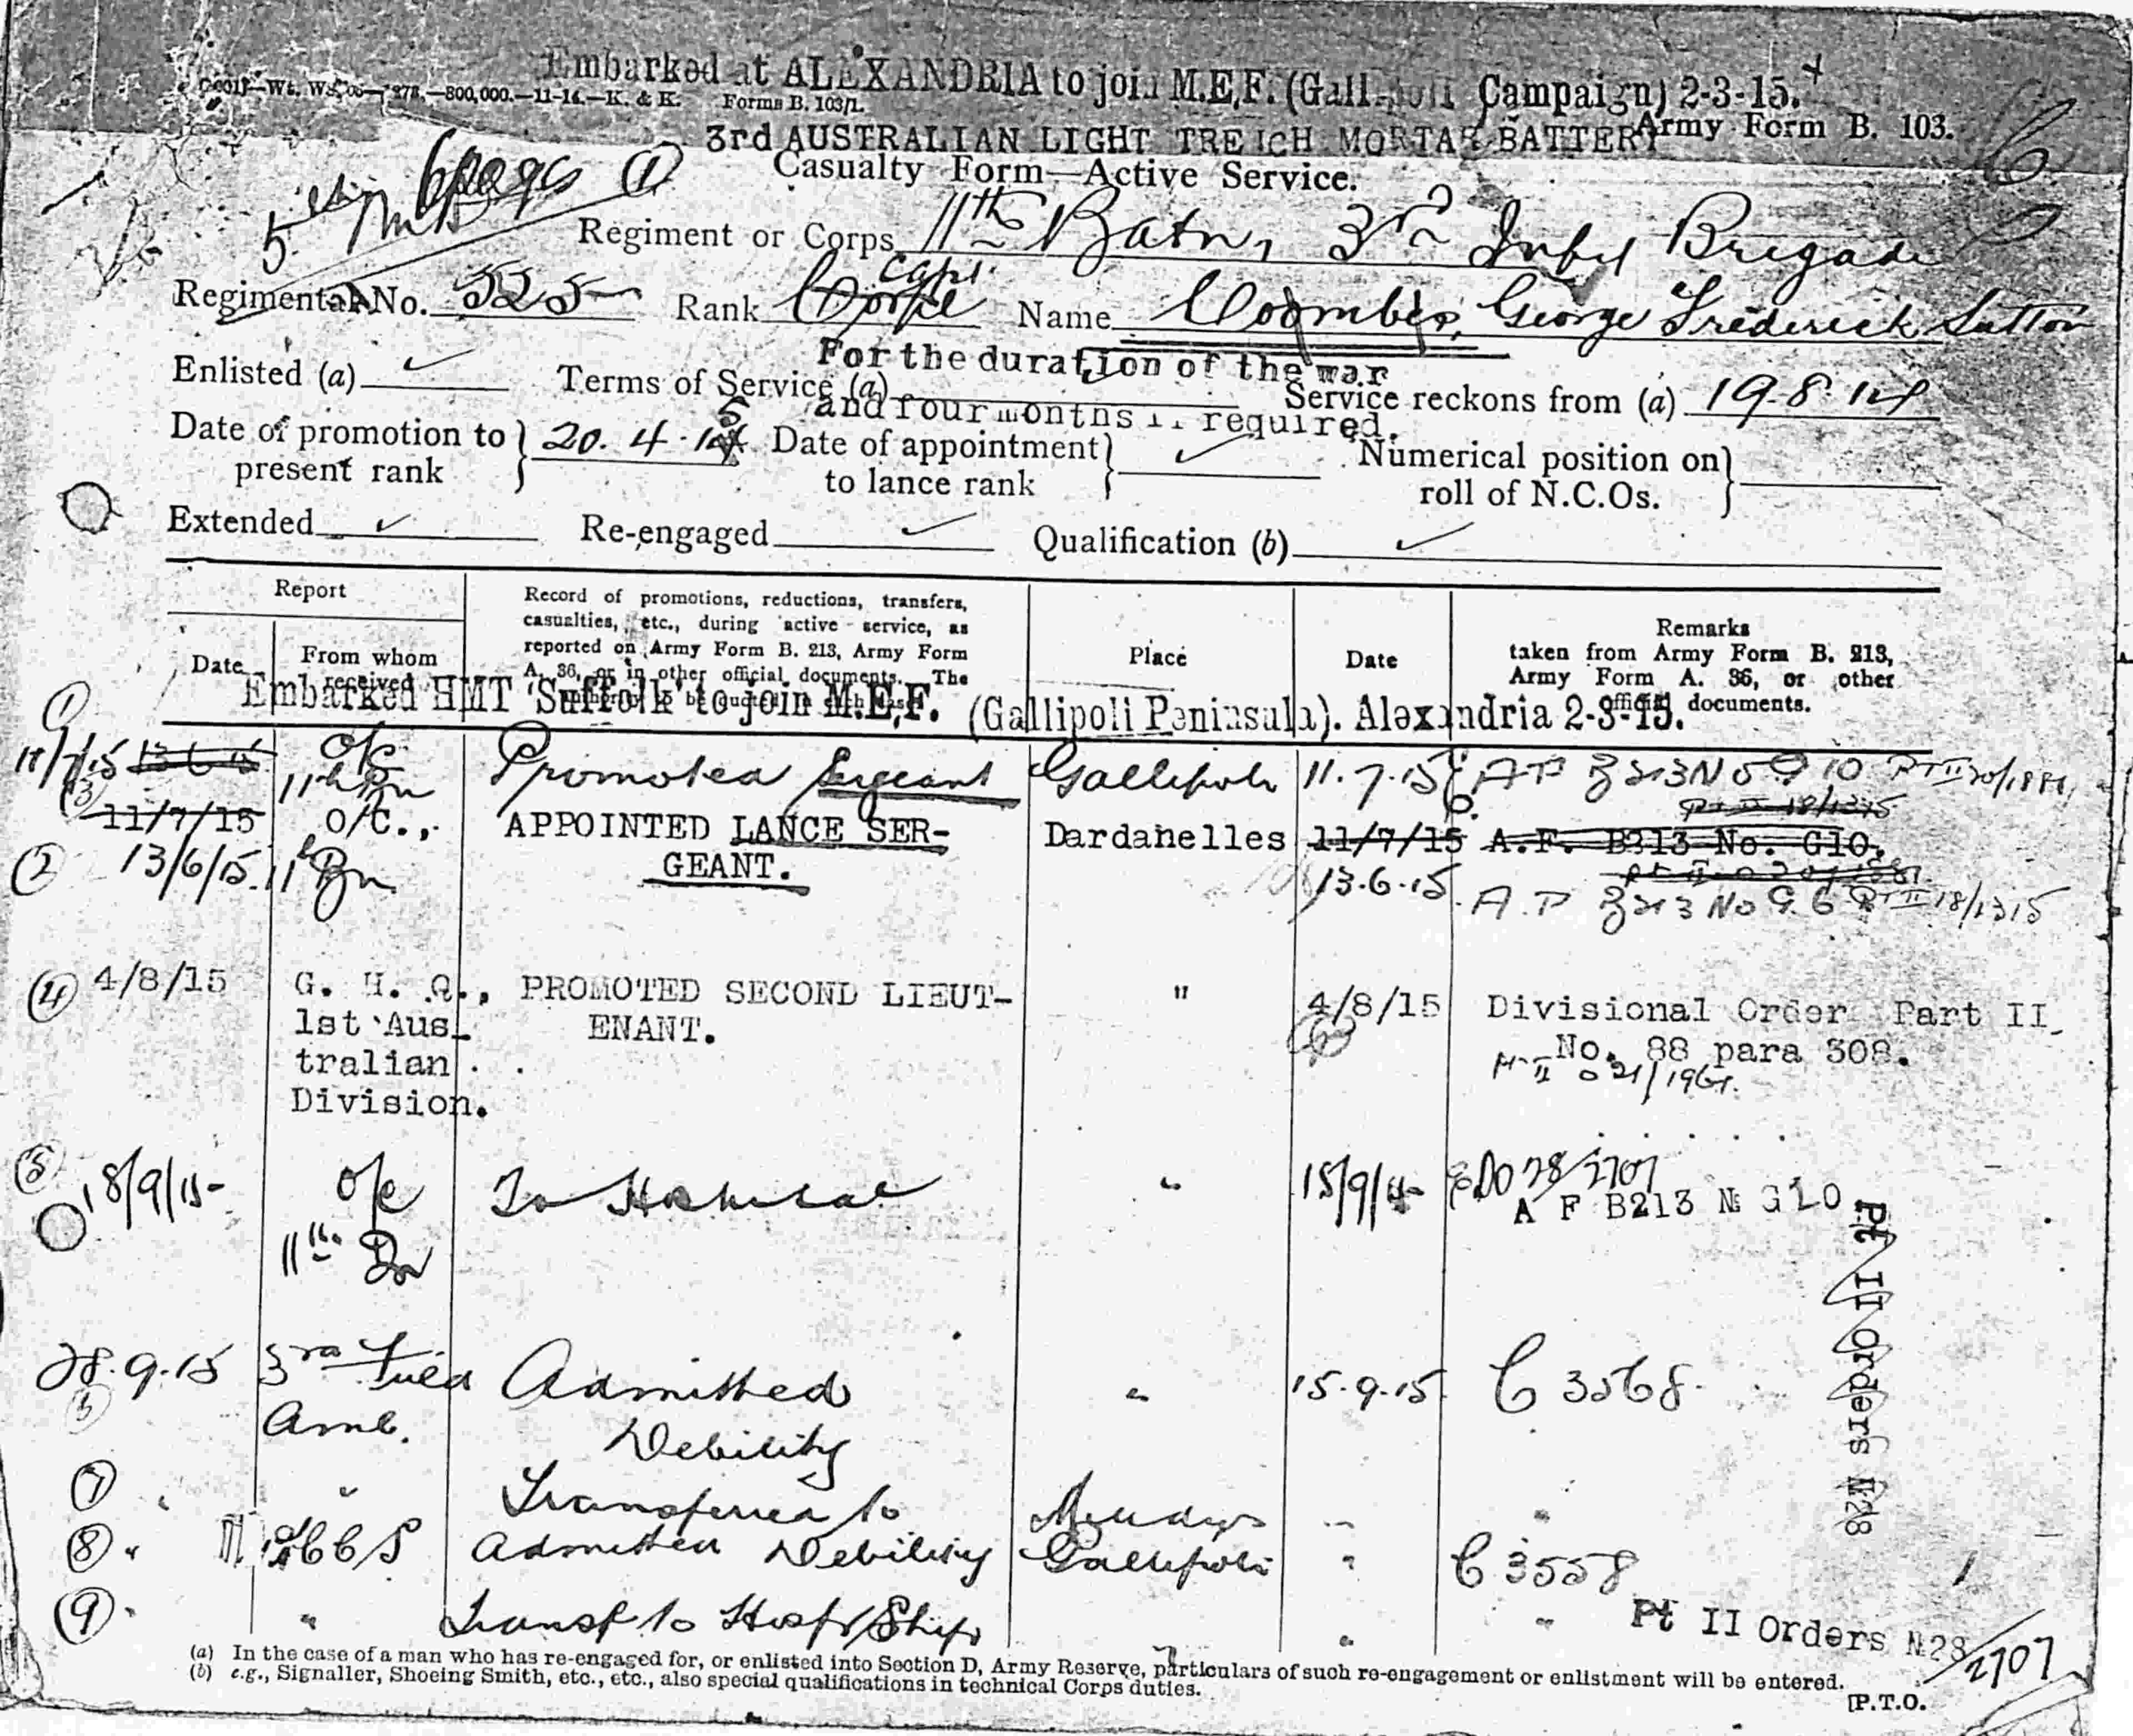 Embarked at ALEXANDRIA to join M.E.F. (Gallipoli Campaign) 2-3-15.
800,000.—11-14.—K. & K. Forms B. 103/1.
Army Form B. 103.
3rd AUSTRALIAN LIGHT TRENCH MORTAR BATTERY
Casualty Form—Active Service.
6 pages ①
Regiment or Corps 11th Batn, 3rd Infy Brigade
Capt.
Regimental No. 525 Rank Corpl Name Coombes, George Frederick Sutton
For the duration of the war
Enlisted (a) ✓ Terms of Service (a) Service reckons from (a) 19.8.14
and four months if required.
Date of promotion to present rank } 20.4.15 Date of appointment to lance rank } ✓ Numerical position on roll of N.C.Os. }
Extended ✓ Re-engaged ✓ Qualification (b) ✓
Report
Date
From whom received
Record of promotions, reductions, transfers,
casualties, etc., during active service, as
reported on Army Form B. 213, Army Form
A. 36, or in other official documents. The
Place
Date
Remarks
taken from Army Form B. 213,
Army Form A. 36, or other
official documents.
Embarked HMT 'Suffolk' to join M.E.F. (Gallipoli Peninsula). Alexandria 2-3-15.
11/7/15 13.6.15 O/C 11th Bn Promoted Sergeant Gallipoli 11.7.15 B213 No G10
③ 11/7/15 O/C., APPOINTED LANCE SER- Dardanelles 11/7/15 A.F. B213 No. G10.
② 13/6/15. 11 Bn GEANT. 13.6.15 B213 No G.6 Pt II 18/1315
④ 4/8/15 G. H. Q., PROMOTED SECOND LIEUT- " 4/8/15 Divisional Order Part II
1st Aus- ENANT. No. 88 para 308.
tralian
Division.
⑤ 18/9/15 O/C To Hospital " 15/9/15 28/2707
A F B213 № G10
11th Bn
Pt II Orders №28
28.9.15 3rd Field Admitted " 15.9.15 C 3568.
Amb. Debility
⑦ " " Transferred to Mudros " "
⑧ " CCS Admitted Debility Gallipoli " C 3558
⑨ " " Transf to Hosp/Ship " " Pt II Orders №28/2707
(a) In the case of a man who has re-engaged for, or enlisted into Section D, Army Reserve, particulars of such re-engagement or enlistment will be entered.
(b) e.g., Signaller, Shoeing Smith, etc., etc., also special qualifications in technical Corps duties.
[P.T.O.